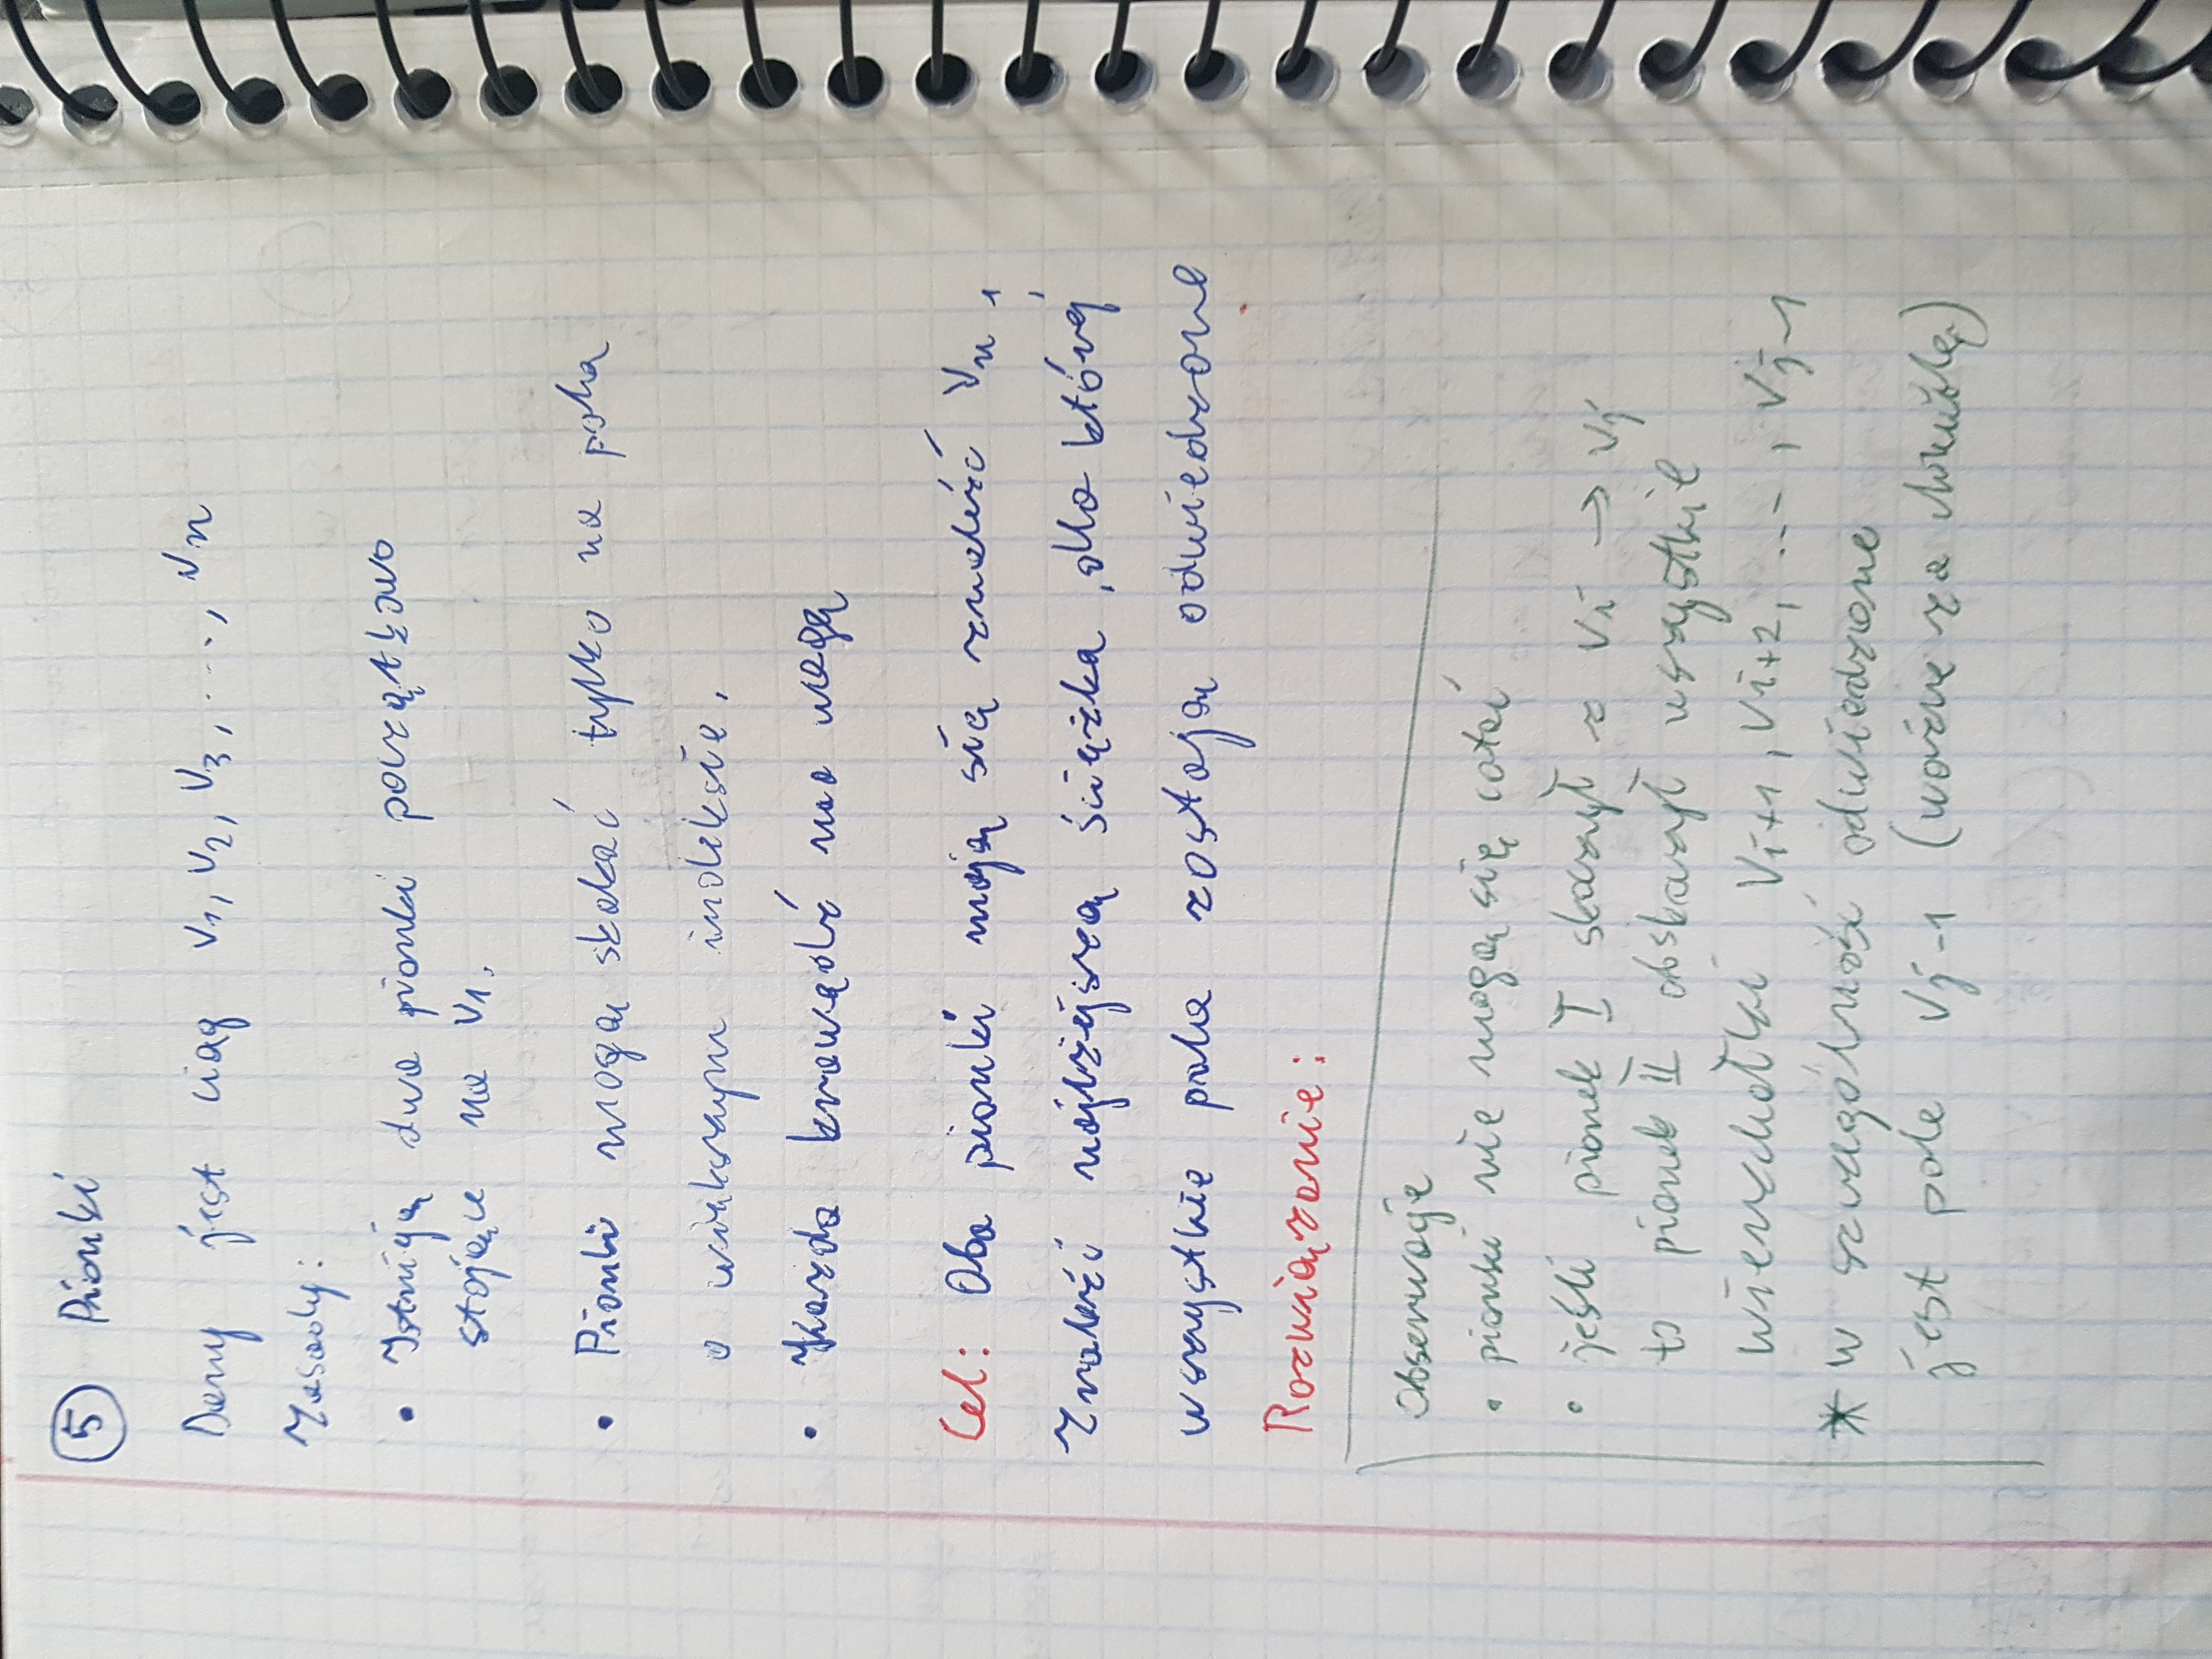 5 Pionki
Dany jest ciąg v1, v2, v3, ...., vn
Zasady:
• Istnieją dwa pionki początkowo
stojące na v1.
• Pionki mogą skakać tylko na pola
o większym indeksie.
• Każda krawędź ma wagę
Cel: Oba pionki mają się znaleźć vn,
Znaleźć najlżejszą ścieżka, dla której
wszystkie pola zostają odwiedzone
Rozwiązanie:
Obserwacje
• pionki nie mogą się cofać
• jeśli pionek I skoczył z vi → vj
to pionek II obskoczył wszystkie
wierzchołki vi+1, vi+2, ..., vj-1
* w szczególność odwiedzone
jest pole vj-1 (ważne za chwilę)